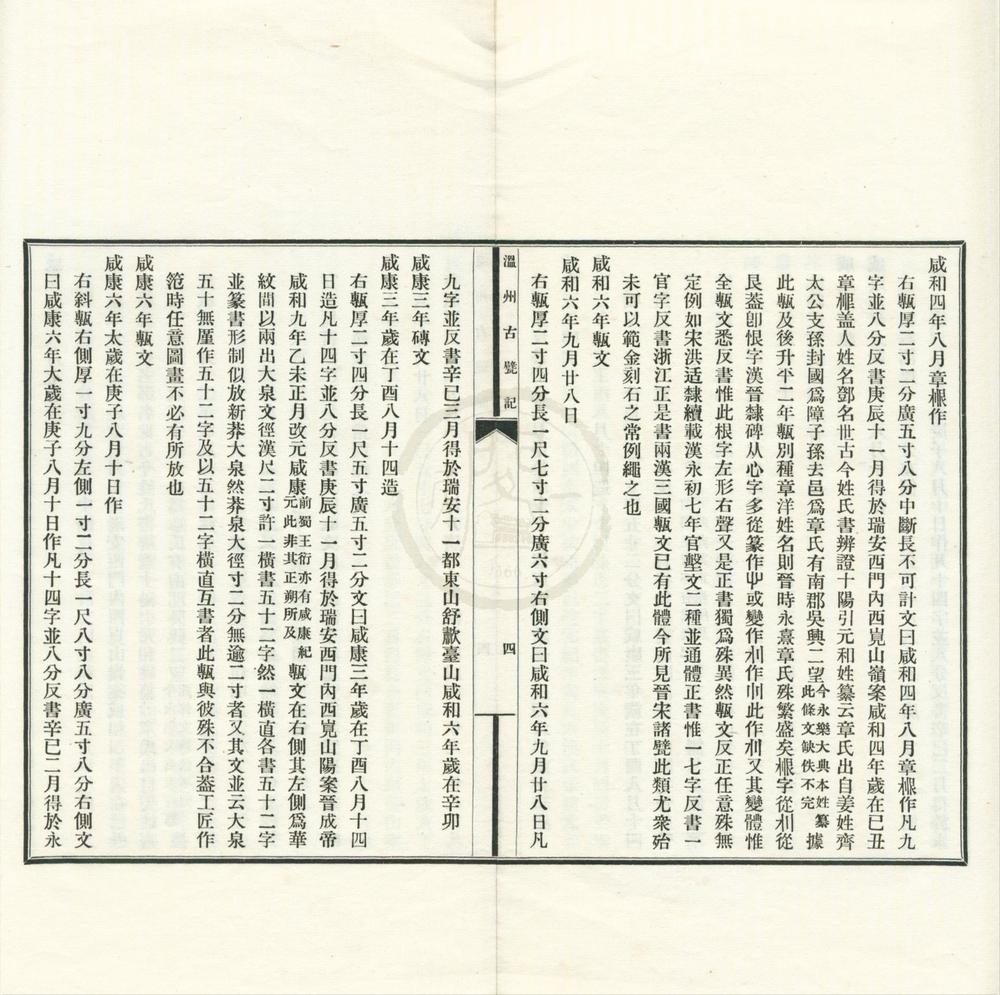 咸和四年八月章㮙作
右甎厚二寸二分廣五寸八分中斷長不可計文曰咸和四年八月章㮙作凡九
字並八分反書庚辰十一月得於瑞安西門內西峴山嶺案咸和四年歲在已丑
章㮙盖人姓名鄧名世古今姓氏書辨證十陽引元和姓纂云章氏出自姜姓齊
太公支孫封國爲鄣子孫去邑爲章氏有南郡吳興二望今永樂大典本姓纂此條文缺佚不完據
此甎及後升平二年甎別種章洋姓名則晉時永嘉章氏殊繁盛矣㮙字從从
艮葢卽恨字漢晉隸碑从心字多從篆作或變作作此作又其變體惟
全甎文悉反書惟此根字左形右聲又是正書獨爲殊異然甎文反正任意殊無
定例如宋洪适隸續載漢永初七年官墼文二種並通體正書惟一七字反書一
官字反書浙江正是書兩漢三國甎文已有此體今所見晉宋諸甓此類尤衆殆
未可以範金刻石之常例繩之也
咸和六年甎文
咸和六年九月廿八日
右甎厚二寸四分長一尺七寸二分廣六寸右側文曰咸和六年九月廿八日凡
溫州古甓記
四
九字並反書辛巳三月得於瑞安十一都東山舒歗臺山咸和六年歲在辛卯
咸康三年磚文
咸康三年歲在丁酉八月十四造
右甎厚二寸四分長一尺五寸廣五寸二分文曰咸康三年歲在丁酉八月十四
日造凡十四字並八分反書庚辰十一月得於瑞安西門內西峴山陽案晉成帝
咸和九年乙未正月改元咸康前蜀王衍亦有咸康紀元此非其正朔所及甎文在右側其左側爲華
紋間以兩出大泉文徑漢尺二寸許一橫書五十二字然一橫直各書五十二字
並篆書形制似放新莽大泉然莽泉大徑寸二分無逾二寸者又其文並云大泉
五十無厪作五十二字及以五十二字橫直互書者此甎與彼殊不合葢工匠作
笵時任意圖畫不必有所放也
咸康六年甎文
咸康六年太歲在庚子八月十日作
右斜甎右側厚一寸九分左側一寸二分長一尺八寸八分廣五寸八分右側文
曰咸康六年大歲在庚子八月十日作凡十四字並八分反書辛巳二月得於永